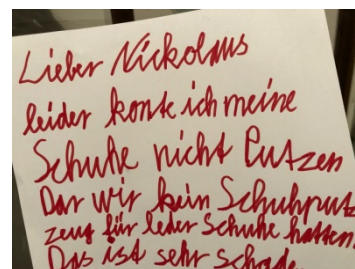 Lieber Nickolaus
leider konte ich meine
Schuhe nicht Putzen
Dar wir kein Schuhputz
zeug für leder Schuhe hatten
Das ist sehr schade